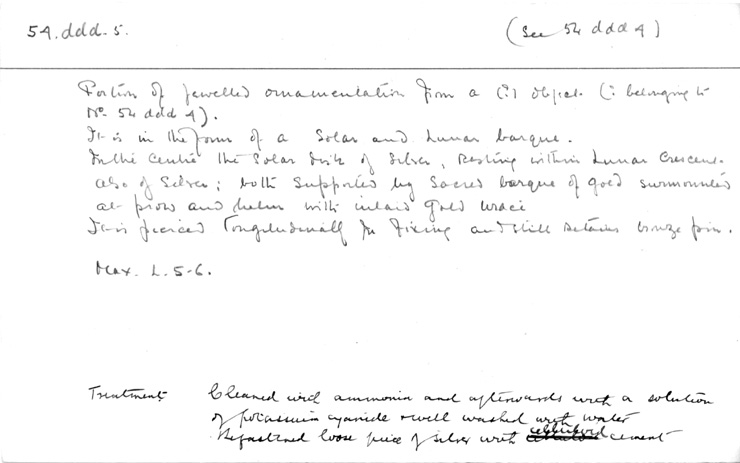 54.ddd.5. (See 54 ddd 4)
Portion of jewelled ornamentation from a (?) object (? belonging to
No. 54 ddd 4).
It is in the form of a Solar and Lunar barque.
In the centre the Solar disk of silver, resting within Lunar crescent
also of Silver; both supported by Sacred barque of gold surmounted
at prow and helm with inlaid gold uraei
It is pierced longitudinally for fixing and still retains bronze pin.
Max. L. 5-6.
Treatment Cleaned with ammonia and afterwards with a solution
of potassium cyanide & well washed with water
Refastened loose piece of silver with celluloid cement